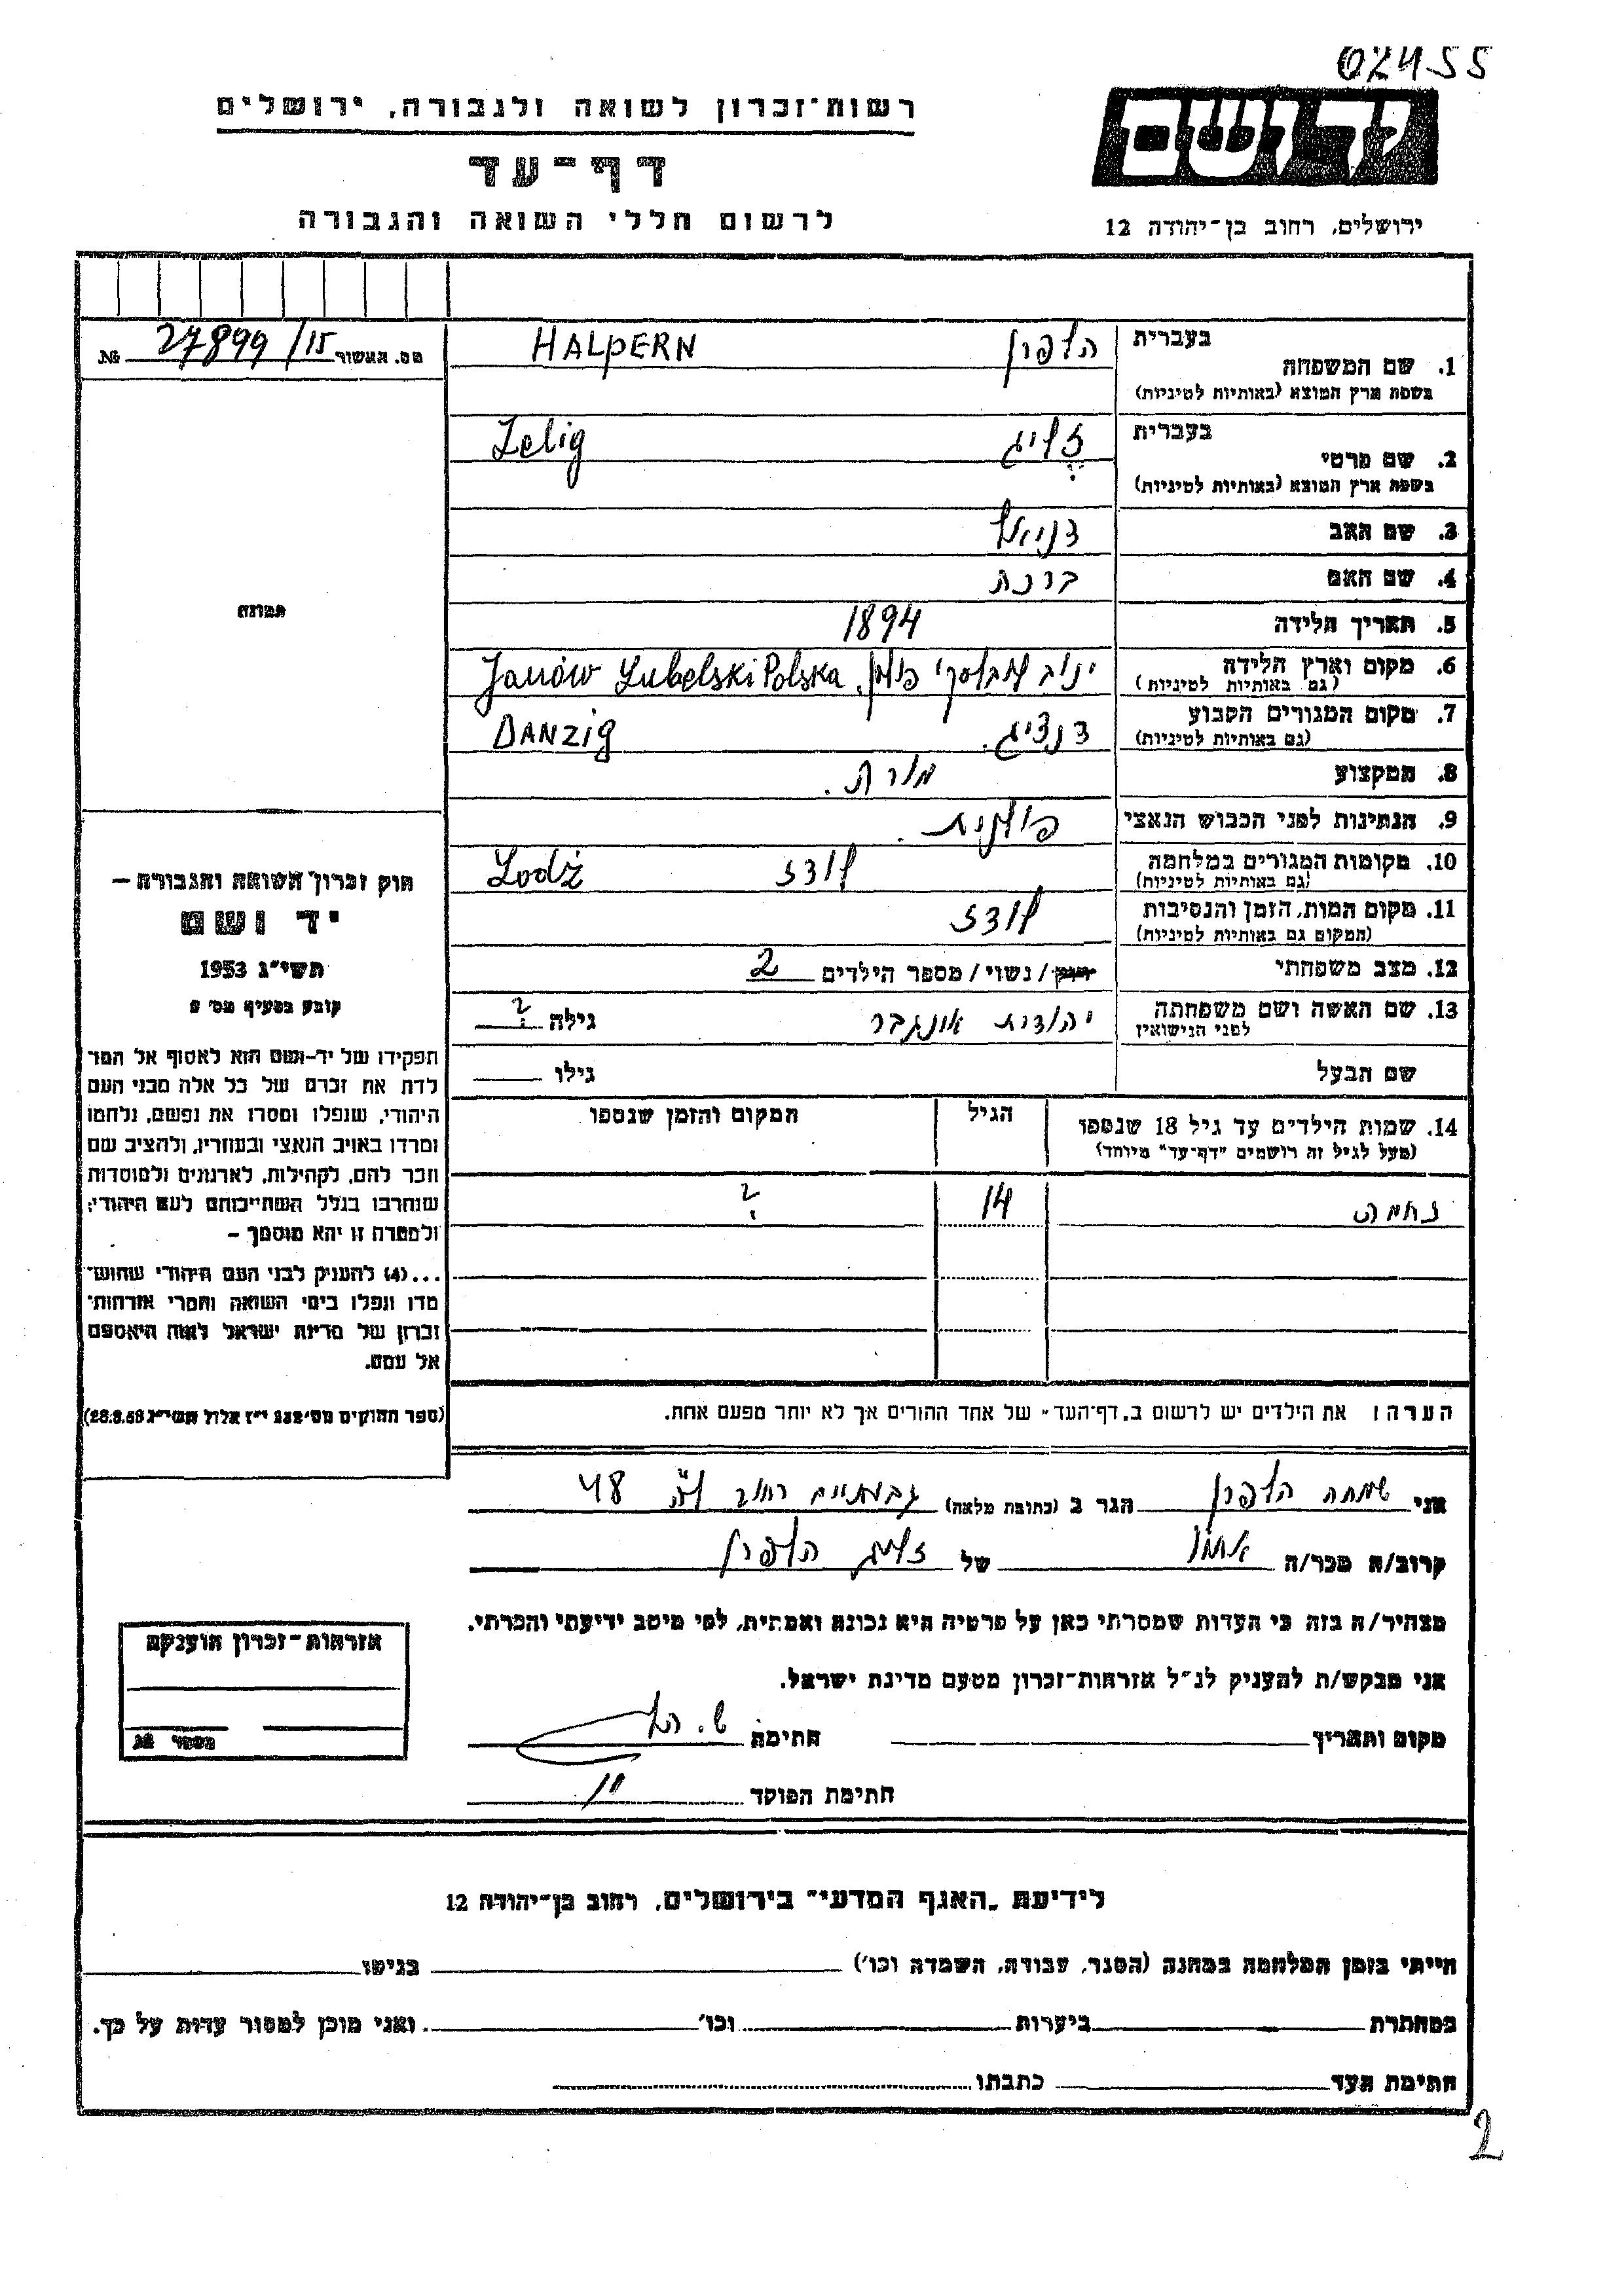 02455
רשות-זכרון לשואה ולגבורה, ירושלים
יד ושם
דף-עד
לרשום חללי השואה והגבורה
ירושלים, רחוב בן-יהודה 12
מס. האשור 27899/15 №
תמונה
בעברית
1. שם המשפחה הלפרן HALPERN
בשפת ארץ המוצא (באותיות לטיניות)
בעברית
2. שם פרטי זליג Zelig
בשפת ארץ המוצא (באותיות לטיניות)
3. שם האב דניאל
4. שם האם ברכה
5. תאריך הלידה 1894
6. מקום וארץ הלידה ינוב לובלסקי פולין. Janów Lubelski Polska
(גם באותיות לטיניות)
7. מקום המגורים הקבוע דנציג. DANZig
(גם באותיות לטיניות)
8. המקצוע מורה.
9. הנתינות לפני הכבוש הנאצי פולנית.
10. מקומות המגורים במלחמה לודז Lodż
(גם באותיות לטיניות)
11. מקום המות, הזמן והנסיבות לודז
(המקום גם באותיות לטיניות)
12. מצב משפחתי רווק / נשוי / מספר הילדים 2
13. שם האשה ושם משפחתה יהודית אונגבר גילה ?
לפני הנישואין
שם הבעל גילו
14. שמות הילדים עד גיל 18 שנספו הגיל המקום והזמן שנספו
(מעל לגיל זה רושמים "דף-עד" מיוחד)
נחמה 14 ?
חוק זכרון השואה והגבורה –
יד ושם
תשי"ג 1953
קובע בסעיף מס'
תפקידו של יד-ושם הוא לאסוף אל המו
לדת את זכרם של כל אלה מבני העם
היהודי, שנפלו ומסרו את נפשם, נלחמו
ומרדו באויב הנאצי ובעוזריו, ולהציב שם
וזכר להם, לקהילות, לארגונים ולמוסדות
שנחרבו בגלל השתייכותם לעם היהודי;
ולמטרה זו יהא מוסמך –
...(4) להעניק לבני העם היהודי שהוש-
מדו ונפלו בימי השואה והמרי אזרחות-
זכרון של מדינת ישראל לאות היאספם
אל עמם.
(ספר החוקים מס' 132 י"ז אלול תשי"ג 28.8.53)
הערה: את הילדים יש לרשום ב„דף-העד" של אחד ההורים אך לא יותר מפעם אחת.
אני שמחה הלפרן הגר ב (כתובת מלאה) גבעתיים רחוב 48
קרוב/ה מכר/ה אחיו של זליג הלפרן
מצהיר/ה בזה כי העדות שמסרתי כאן על פרטיה היא נכונה ואמתית, לפי מיטב ידיעתי והכרתי.
אני מבקש/ת להעניק לנ"ל אזרחות-זכרון מטעם מדינת ישראל.
מקום ותאריך חתימה
חתימת הפוקד
אזרחות-זכרון הוענקה
מספר
לידיעת „האגף המדעי" בירושלים, רחוב בן-יהודה 12
הייתי בזמן המלחמה במחנה (הסגר, עבודה, השמדה וכו') בגיטו
במחתרת ביערות וכו' ואני מוכן למסור עדות על כך.
חתימת העד כתבתו
2